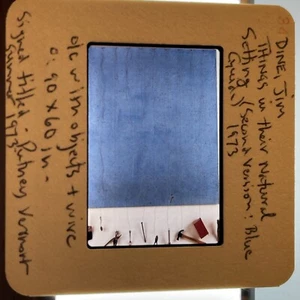 DINE, Jim
THINGS in their Natural
Setting (Second Version: Blue
1973
o/c with objects + wire
o: 90 x 60 in-
Signed titled - Putney, Vermont
Summer 1973